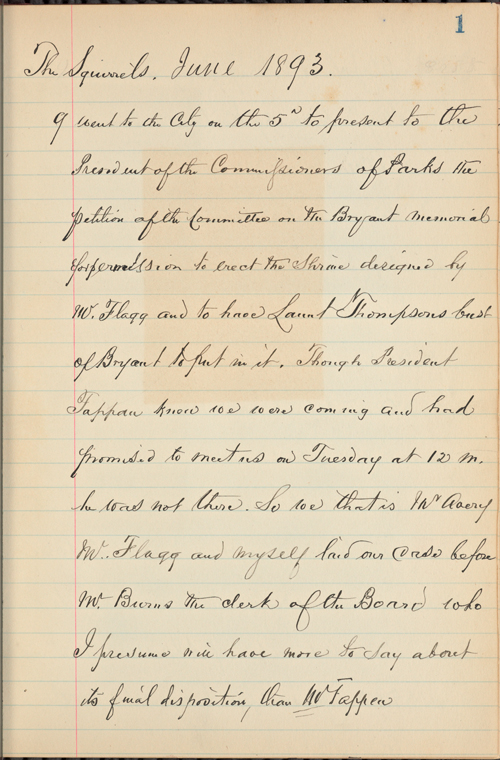 1
The Squirrels. June 1893.
I went to the City on the 5th to present to the
President of the Commissioners of Parks the
petition of the Committee on the Bryant Memorial
for permission to erect the Shrine designed by
Mr. Flagg and to have Launt Thompsons bust
of Bryant to put in it. Though President
Tappan knew we were coming and had
promised to meet us on Tuesday at 12 m.
he was not there. So we that is Mr Avery
Mr. Flagg and myself laid our case before
Mr. Burns the clerk of the Board who
I presume will have more to say about
its final disposition, than Mr Tappen